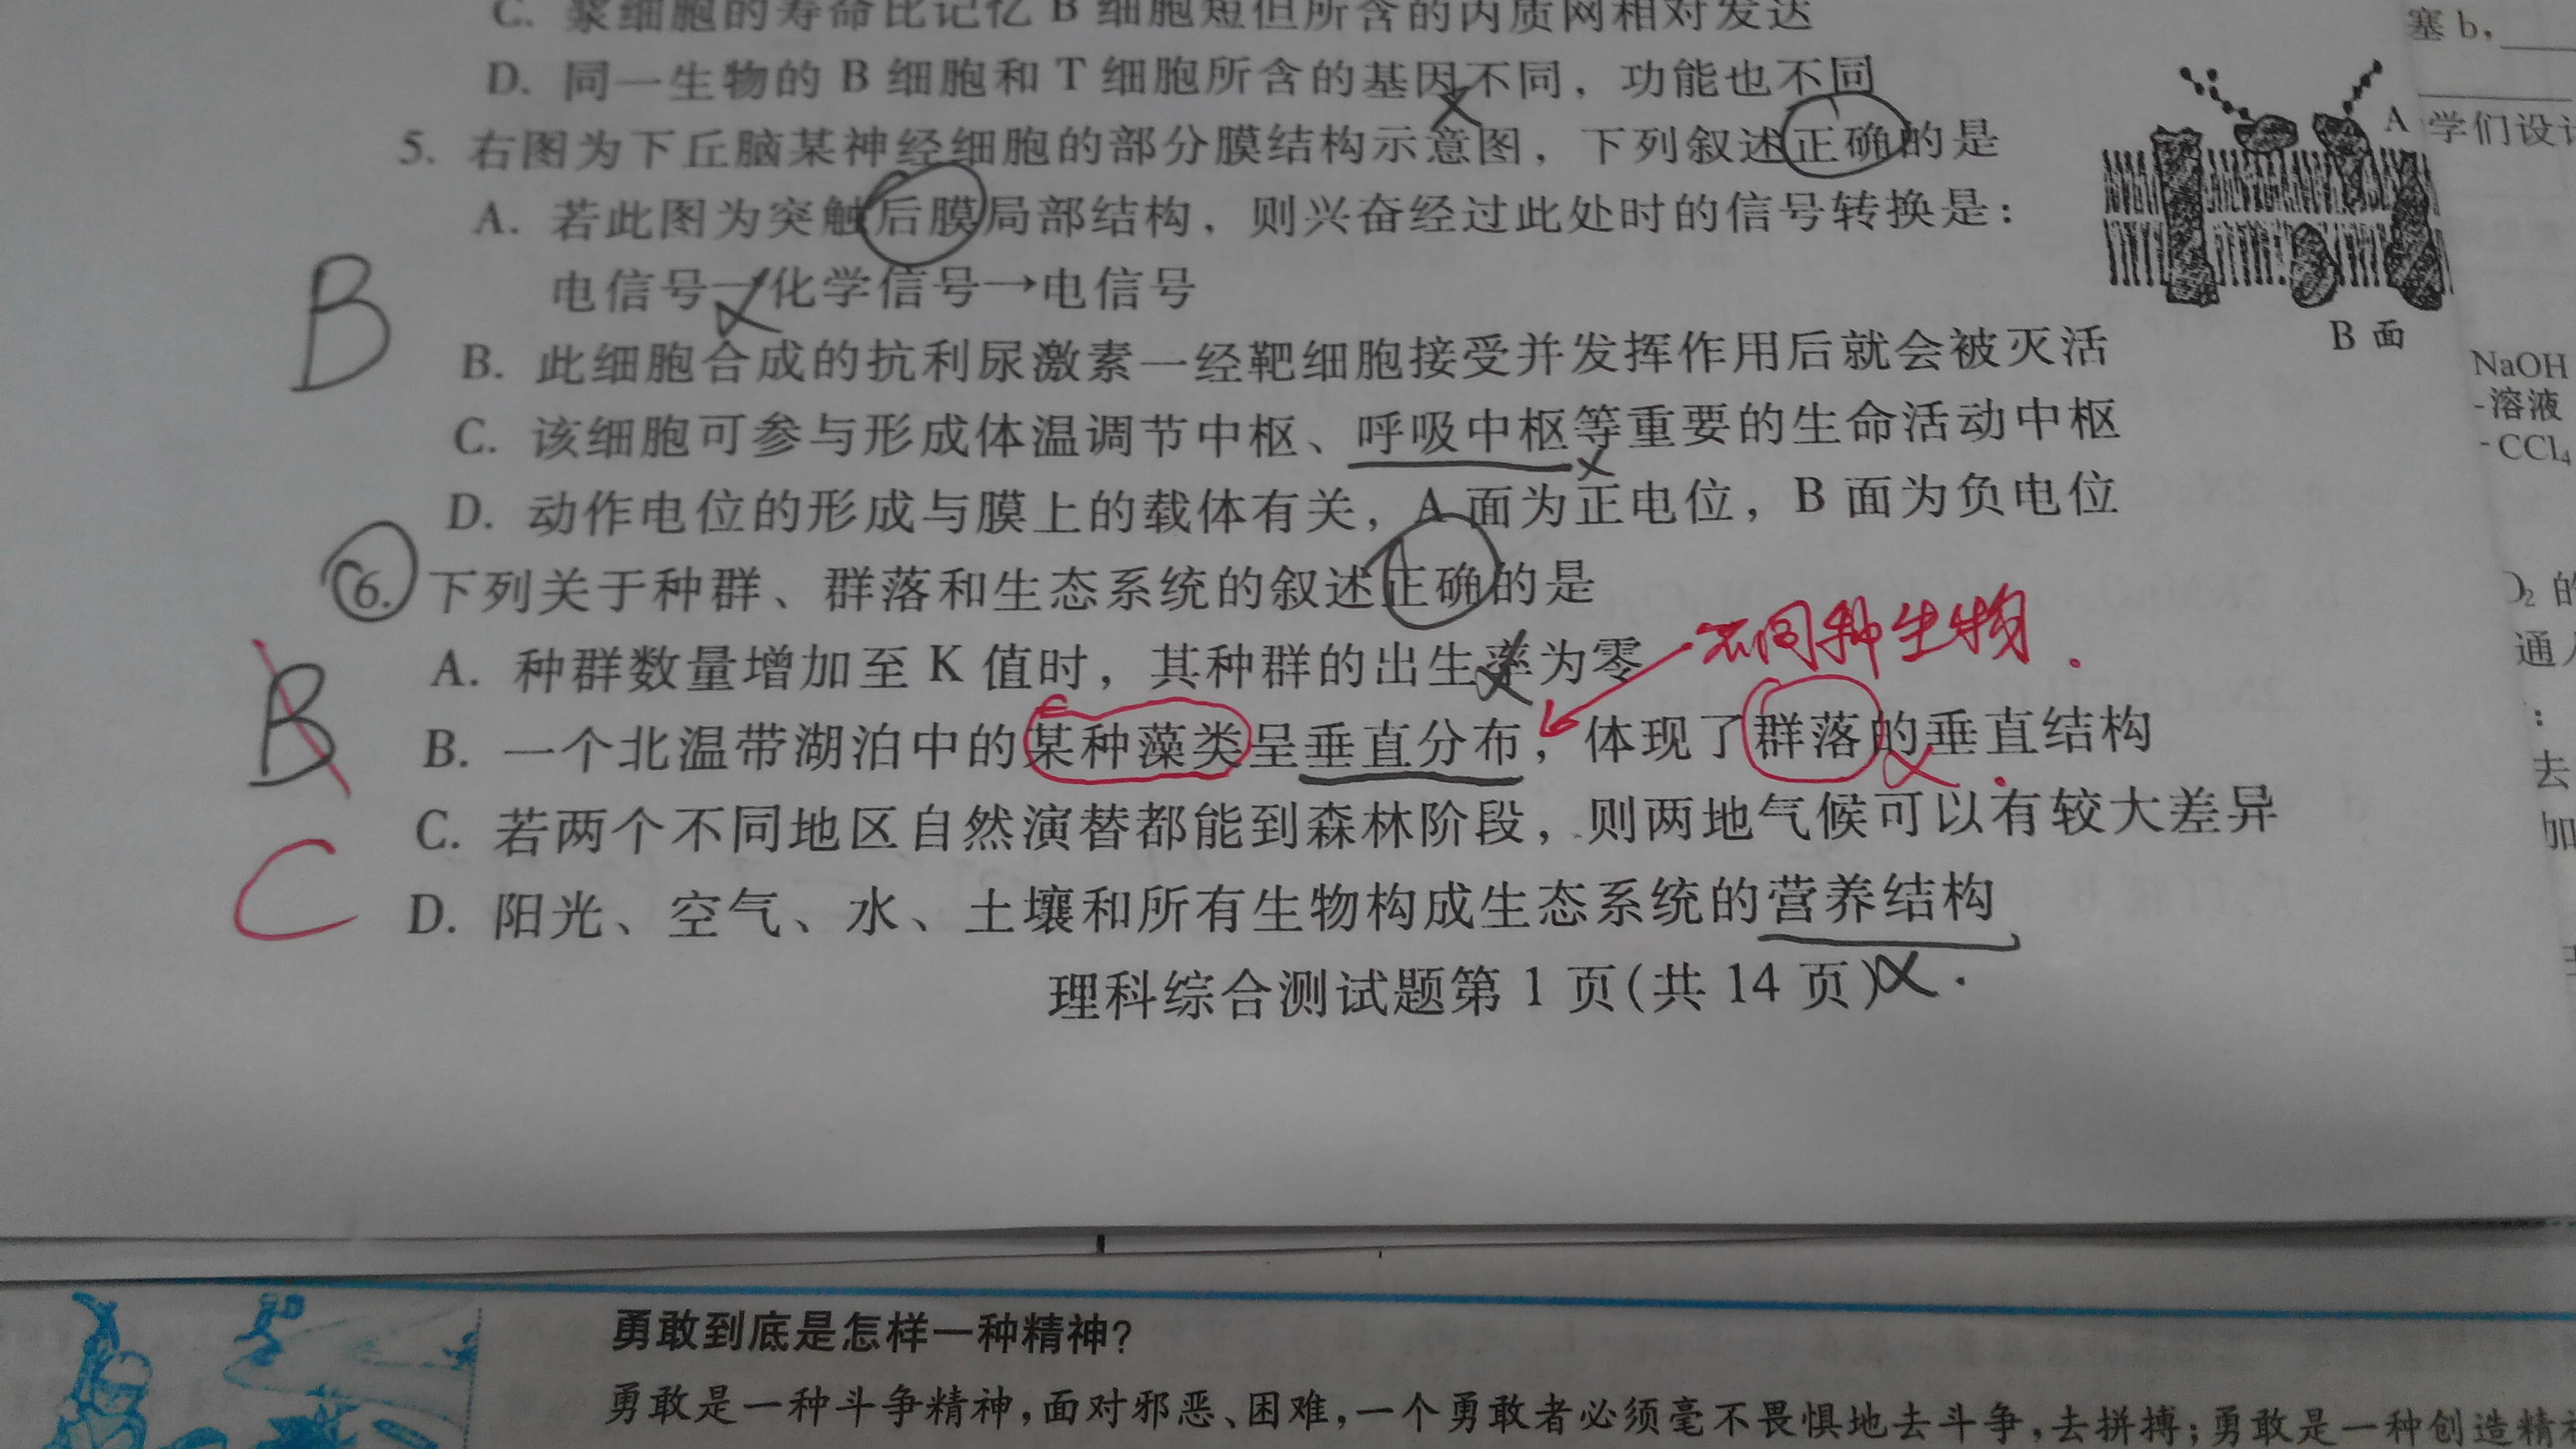 C. 浆细胞的寿命比记忆 B 细胞短但所含的内质网相对发达
D. 同一生物的 B 细胞和 T 细胞所含的基因不同，功能也不同
5. 右图为下丘脑某神经细胞的部分膜结构示意图，下列叙述正确的是
A. 若此图为突触后膜局部结构，则兴奋经过此处时的信号转换是：
电信号→化学信号→电信号
B
B. 此细胞合成的抗利尿激素一经靶细胞接受并发挥作用后就会被灭活
C. 该细胞可参与形成体温调节中枢、呼吸中枢等重要的生命活动中枢
D. 动作电位的形成与膜上的载体有关，A 面为正电位，B 面为负电位
6. 下列关于种群、群落和生态系统的叙述正确的是
A. 种群数量增加至 K 值时，其种群的出生率为零
不同种生物.
B
B. 一个北温带湖泊中的某种藻类呈垂直分布，体现了群落的垂直结构
C. 若两个不同地区自然演替都能到森林阶段，则两地气候可以有较大差异
C
D. 阳光、空气、水、土壤和所有生物构成生态系统的营养结构
理科综合测试题第 1 页(共 14 页)
A
B 面
塞 b，
学们设
NaOH
-溶液
-CCl₄
通
：
去
加
勇敢到底是怎样一种精神?
勇敢是一种斗争精神,面对邪恶、困难,一个勇敢者必须毫不畏惧地去斗争,去拼搏;勇敢是一种创造精